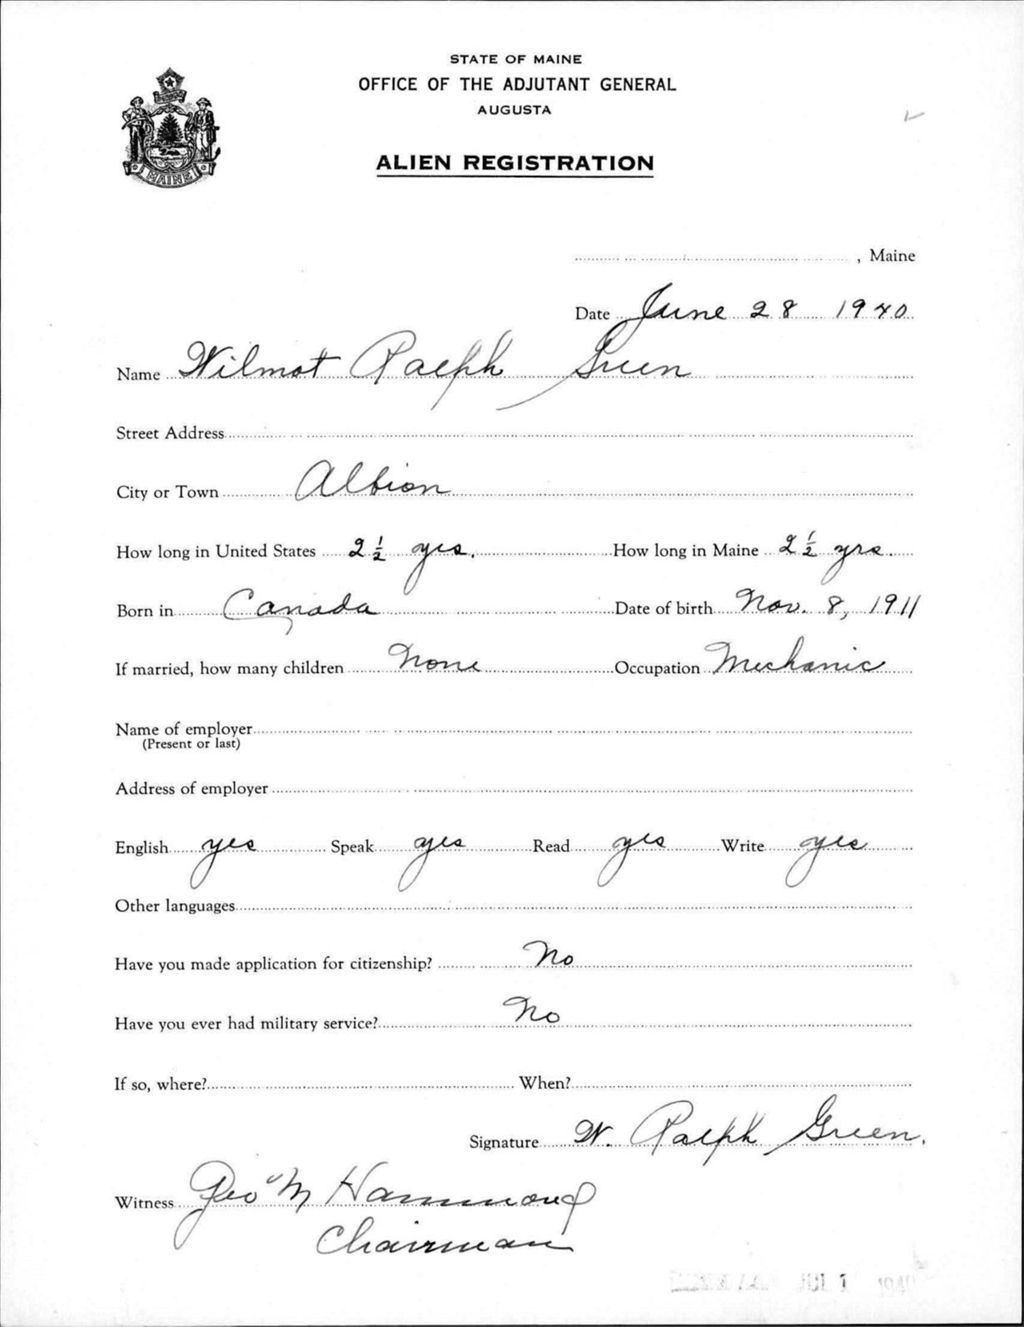 STATE OF MAINE
OFFICE OF THE ADJUTANT GENERAL
AUGUSTA
ALIEN REGISTRATION
MAINE
, Maine
Date June 28 1940
Name Wilmot Ralph Green
Street Address
City or Town Albion
How long in United States 2 1/2 yrs. How long in Maine 2 1/2 yrs.
Born in Canada Date of birth Nov. 8, 1911
If married, how many children None Occupation Mechanic
Name of employer
(Present or last)
Address of employer
English yes Speak yes Read yes Write yes
Other languages
Have you made application for citizenship? No
Have you ever had military service? No
If so, where? When?
Signature W. Ralph Green.
Witness Geo M Hammond
Chairman
JUL 1 1940